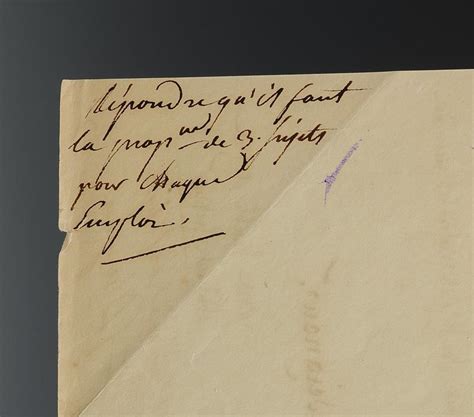 Répondre qu'il faut
la prop.on de 3. sujets
pour chaque
Emploi.